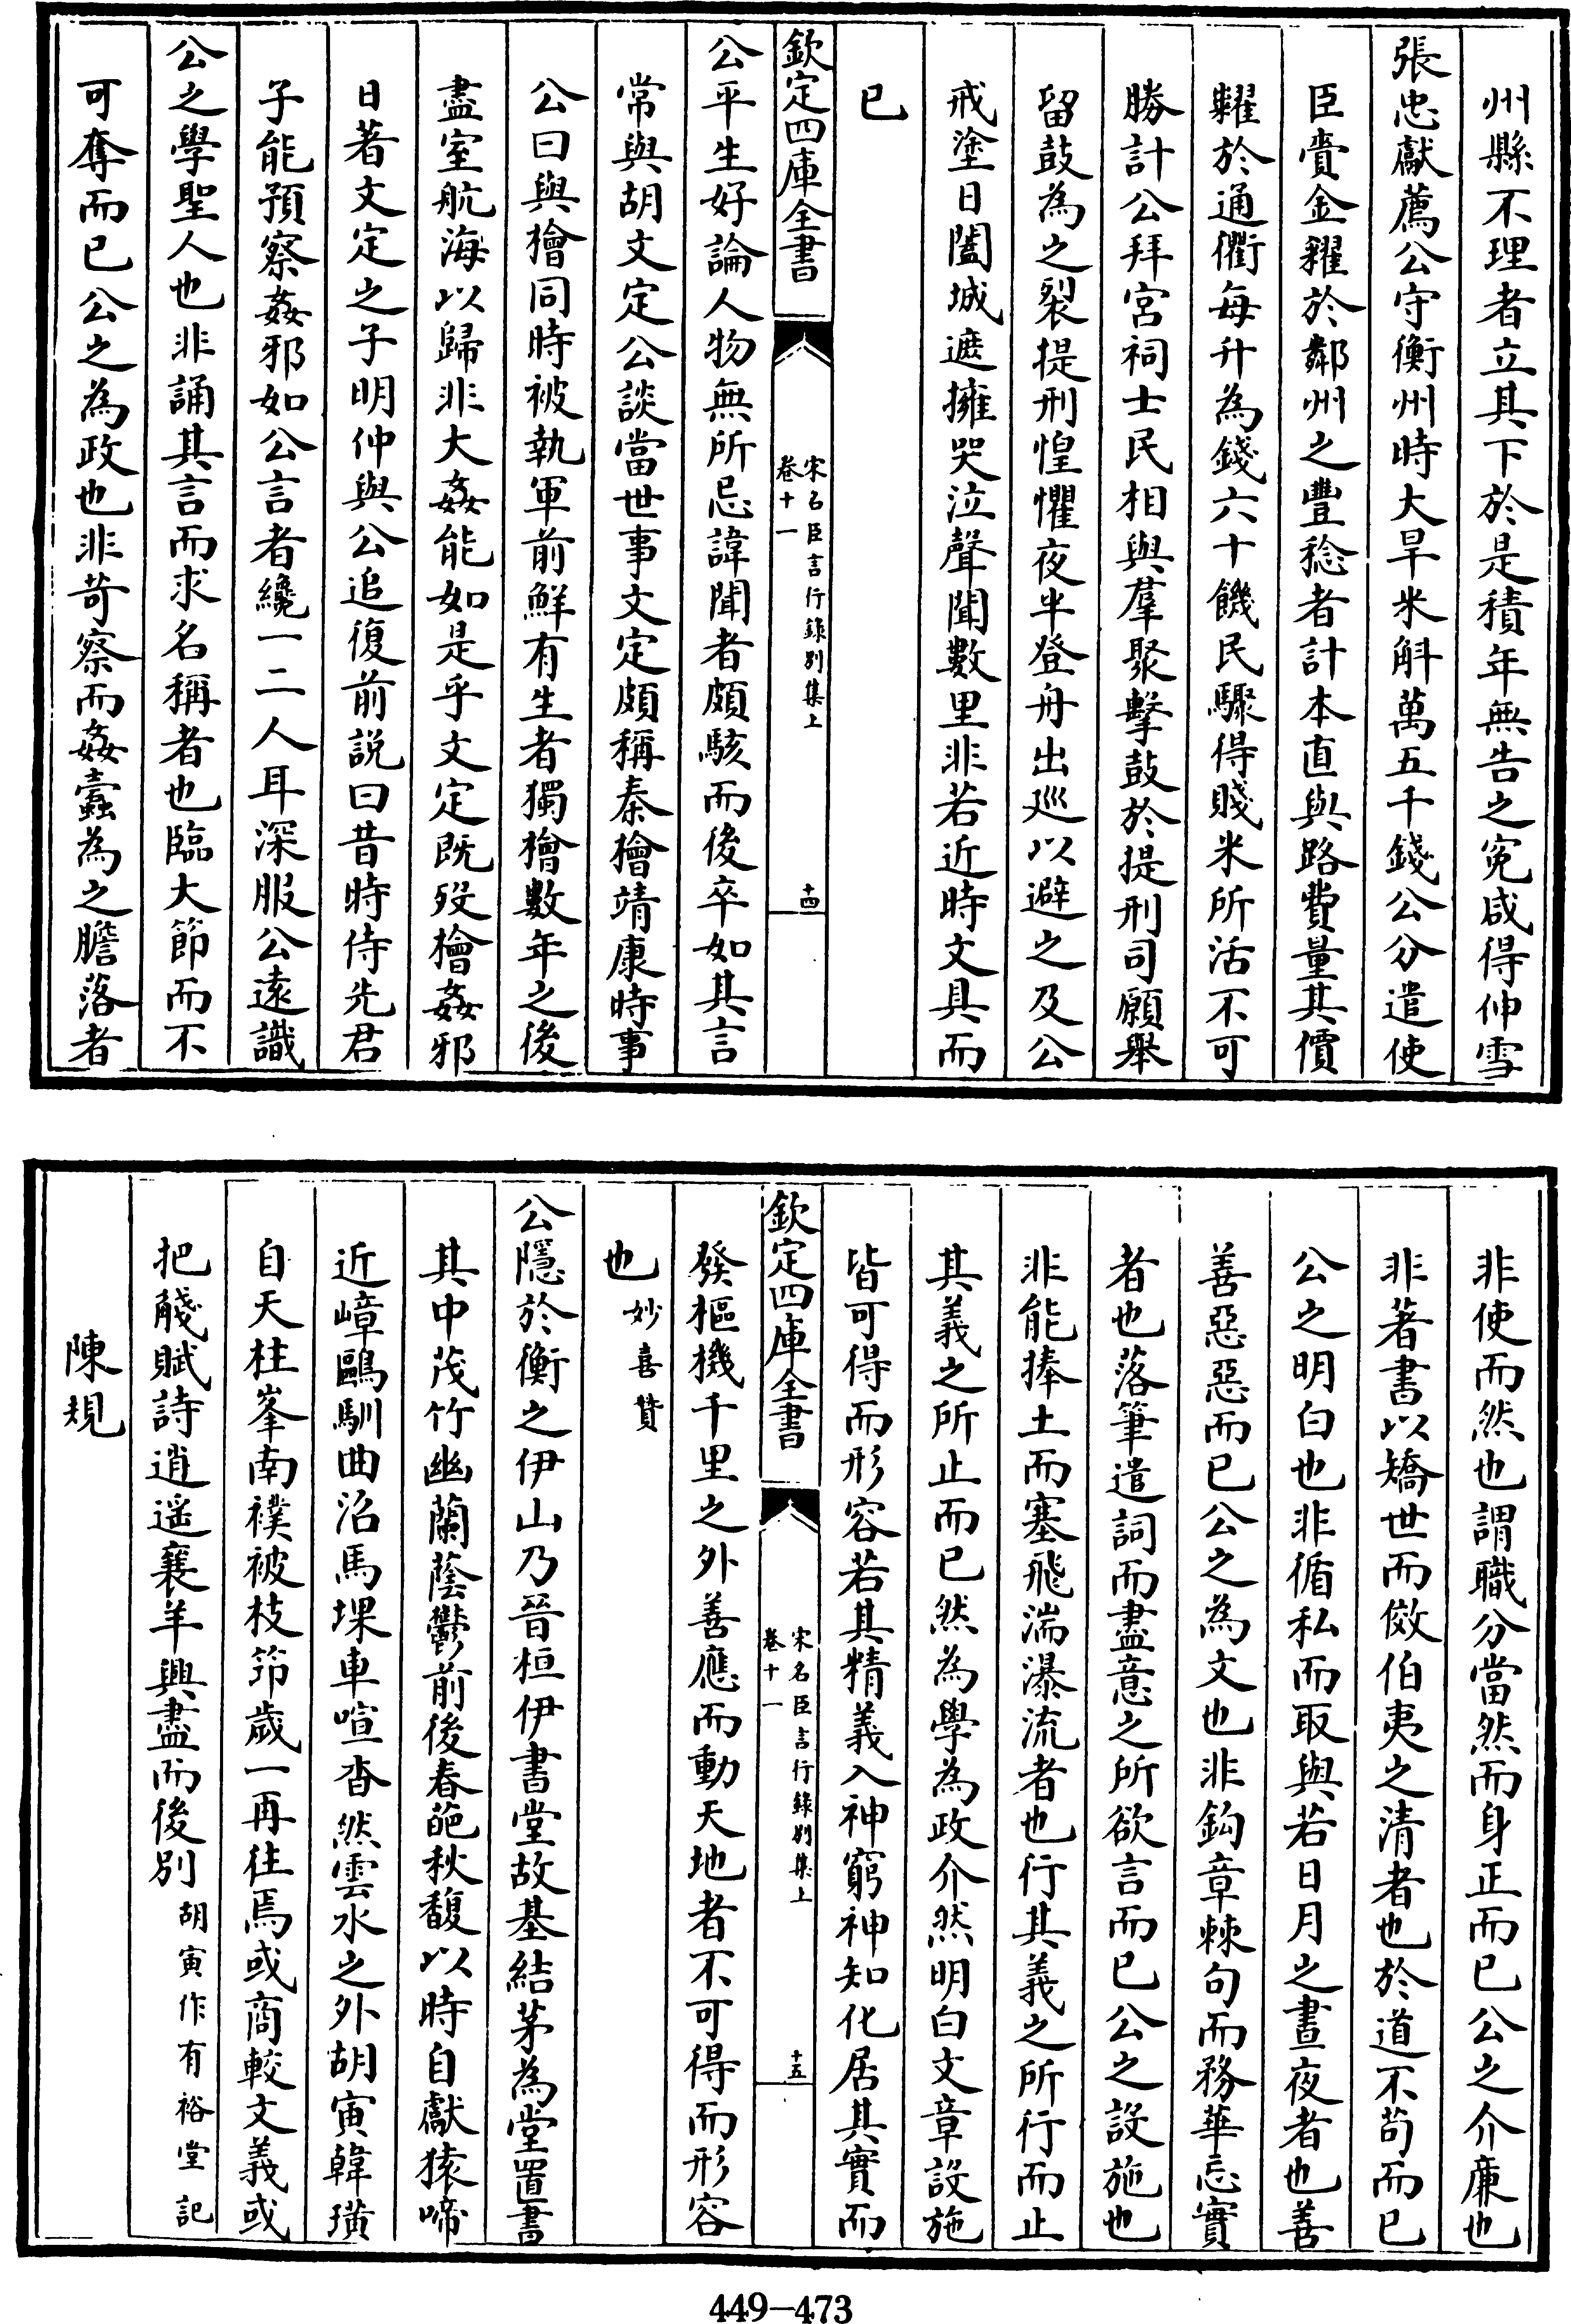 州縣不理者立其下於是積年無告之寃咸得伸雪
張忠獻薦公守衡州時大旱米斛萬五千錢公分遣使
臣賫金糴於鄰州之豐稔者計本直與路費量其價
糶於通衢每升為錢六十饑民驟得賤米所活不可
勝計公拜宮祠士民相與羣聚擊鼓於提刑司願舉
留鼓為之裂提刑惶懼夜半登舟出巡以避之及公
戒塗日闔城遮擁哭泣聲聞數里非若近時文具而
已
欽定四庫全書
宋名臣言行錄別集上
卷十一
十四
公平生好論人物無所忌諱聞者頗駭而後卒如其言
常與胡文定公談當世事文定頗稱秦檜靖康時事
公曰與檜同時被執軍前鮮有生者獨檜數年之後
盡室航海以歸非大姦能如是乎文定既歿檜姦邪
日著文定之子明仲與公追復前説曰昔時侍先君
子能預察姦邪如公言者纔一二人耳深服公遠識
公之學聖人也非誦其言而求名稱者也臨大節而不
可奪而已公之為政也非苛察而姦蠹為之膽落者
非使而然也謂職分當然而身正而已公之介亷也
非著書以矯世而傚伯夷之清者也於道不茍而已
公之明白也非循私而取與若日月之晝夜者也善
善惡惡而已公之為文也非鈎章棘句而務華忘實
者也落筆遣詞而盡意之所欲言而已公之設施也
非能捧土而塞飛湍瀑流者也行其義之所行而止
其義之所止而已然為學為政介然明白文章設施
皆可得而形容若其精義入神窮神知化居其實而
欽定四庫全書
宋名臣言行錄別集上
卷十一
十五
發樞機千里之外善應而動天地者不可得而形容
也 妙喜贊
公隱於衡之伊山乃晉桓伊書堂故基結茅為堂置書
其中茂竹幽蘭蔭鬱前後春葩秋馥以時自獻猿啼
近嶂鷗馴曲沼馬堁車喧杳然雲水之外胡寅韓璜
自天柱峯南襆被枝笻歲一再往焉或商較文義或
把觴賦詩逍遥襄羊興盡而後別 胡寅作有裕堂記
陳規
449—473